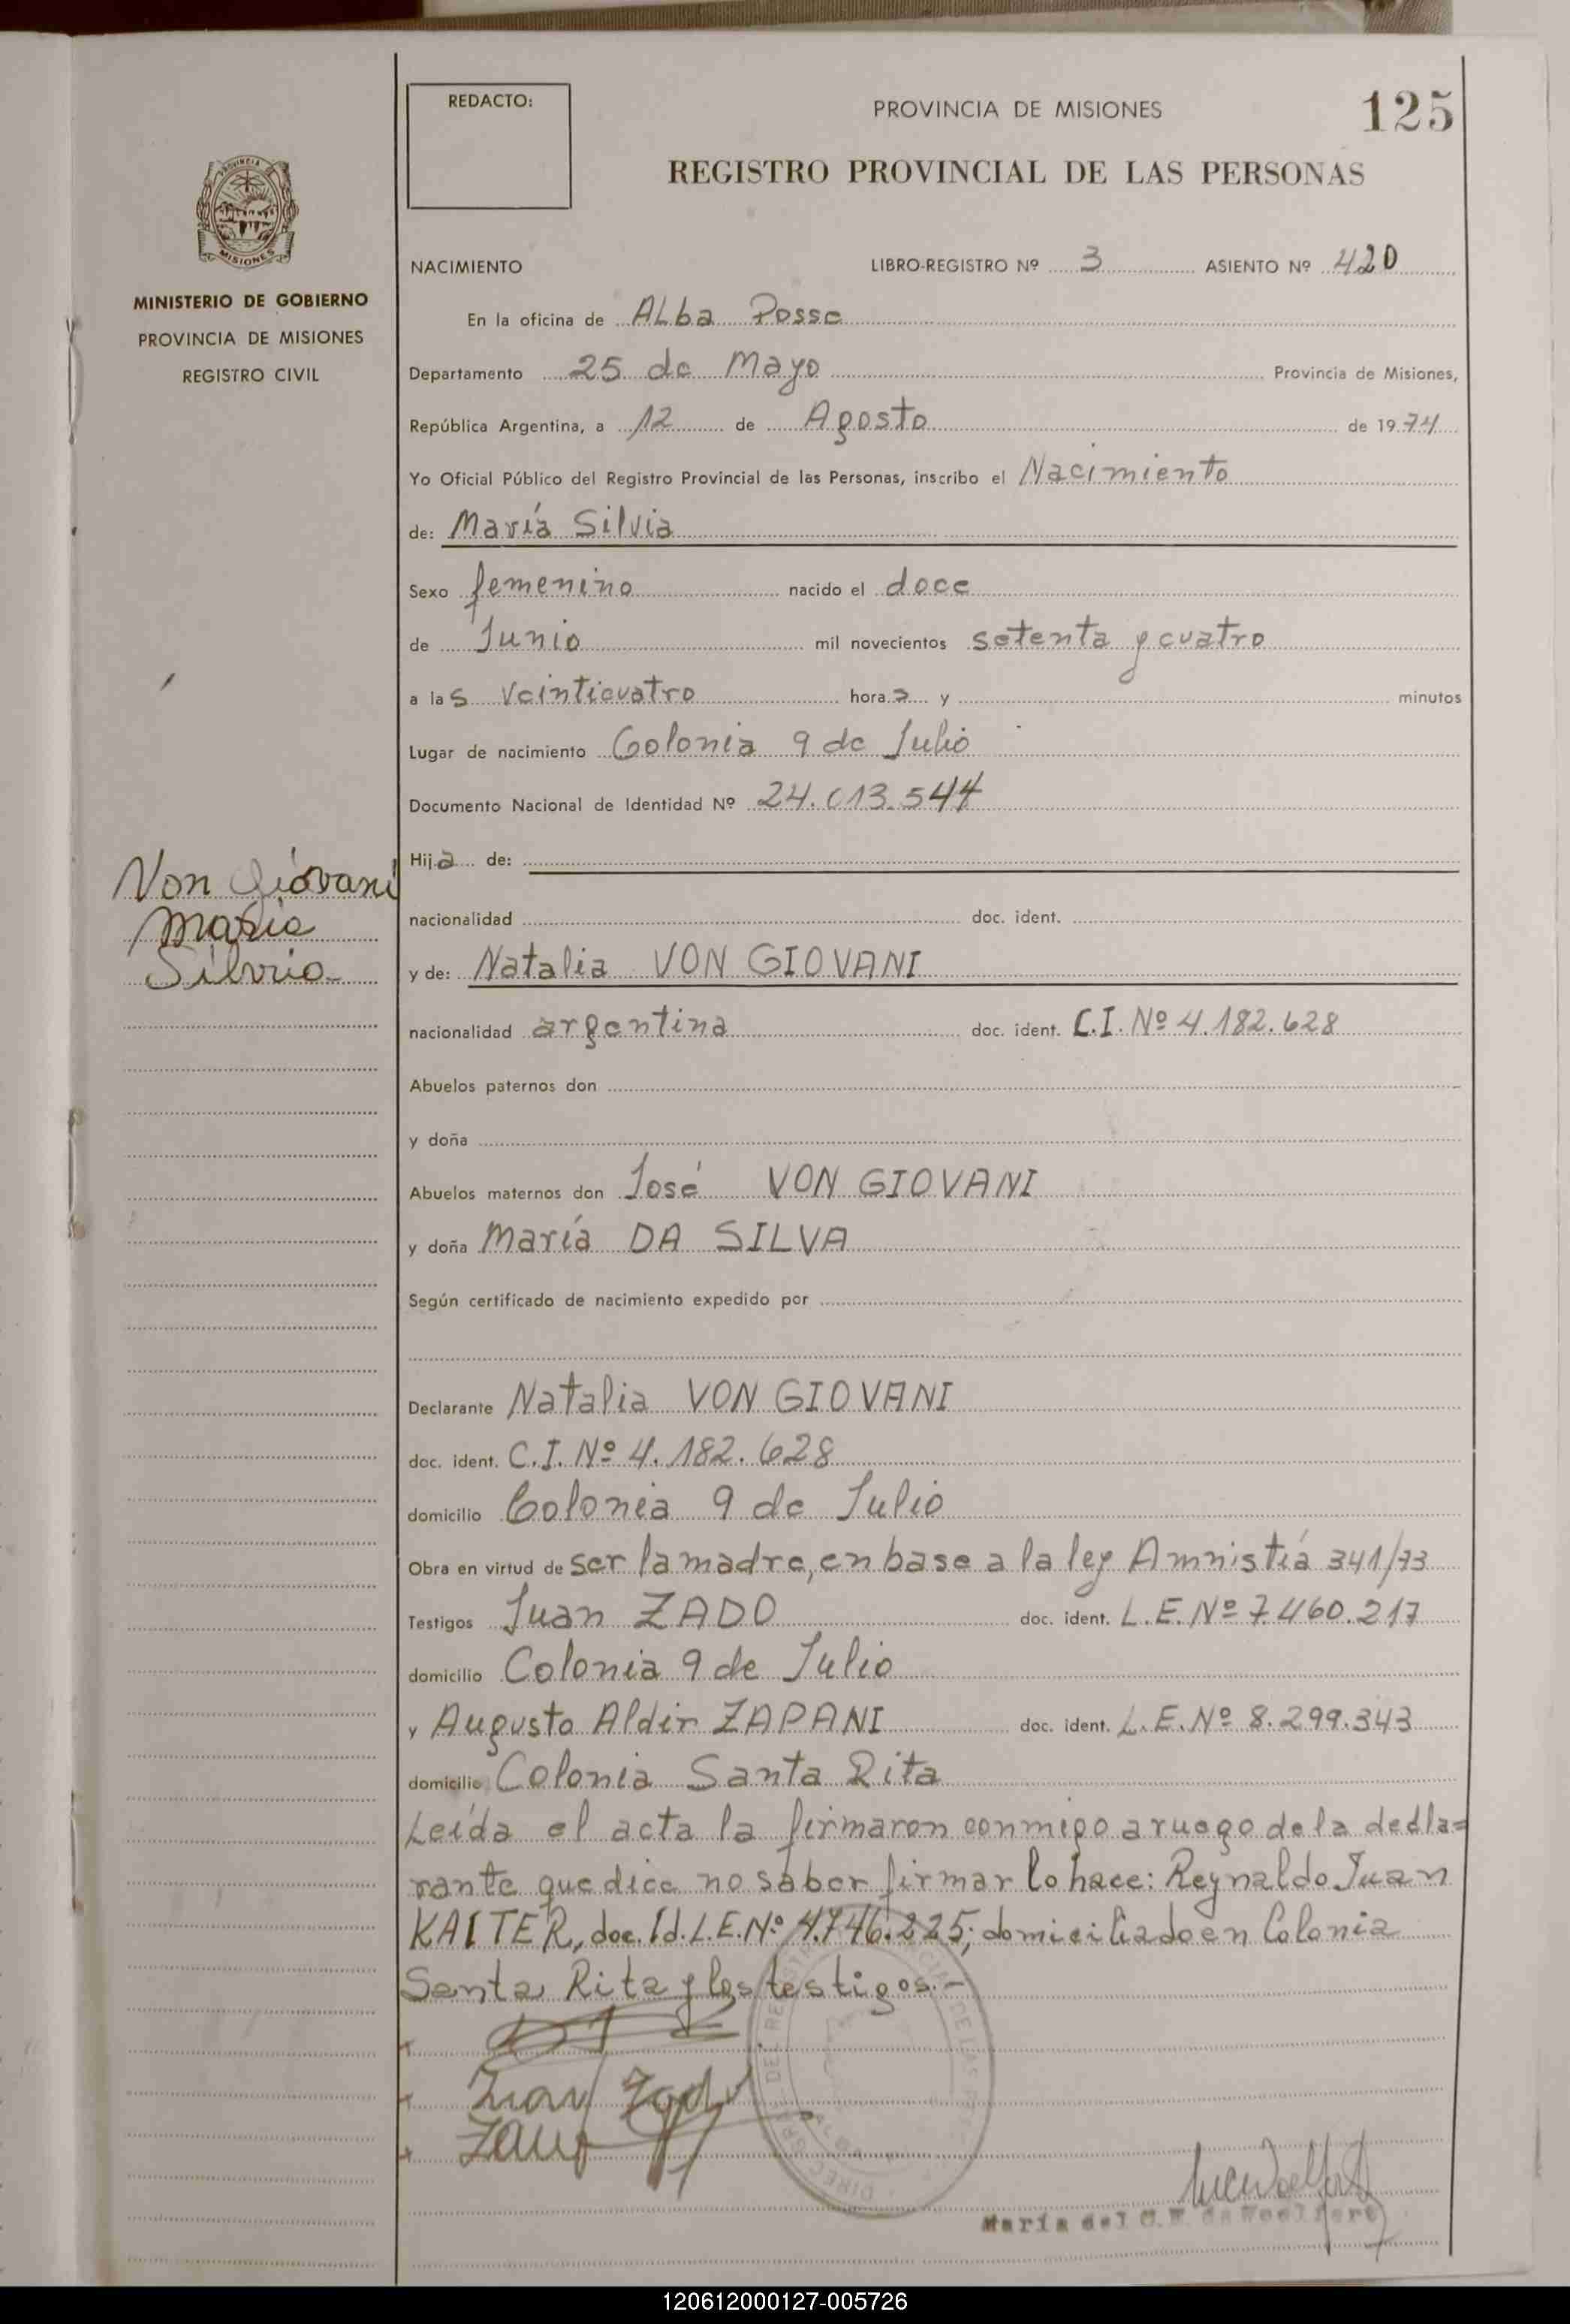 REDACTO:
PROVINCIA DE MISIONES
125
REGISTRO PROVINCIAL DE LAS PERSONAS
PROVINCIA
MISIONES
MINISTERIO DE GOBIERNO
PROVINCIA DE MISIONES
REGISTRO CIVIL
NACIMIENTO LIBRO-REGISTRO Nº 3 ASIENTO Nº 420
En la oficina de Alba Posse
Departamento 25 de Mayo Provincia de Misiones,
República Argentina, a 12 de Agosto de 1974
Yo Oficial Público del Registro Provincial de las Personas, inscribo el Nacimiento
de: María Silvia
Sexo femenino nacido el doce
de Junio mil novecientos setenta y cuatro
a las veinticuatro horas y minutos
Lugar de nacimiento Colonia 9 de Julio
Documento Nacional de Identidad Nº 24.013.544
Von Giovani
Maria
Silvia
Hija de:
nacionalidad doc. ident.
y de: Natalia VON GIOVANI
nacionalidad argentina doc. ident. C.I. Nº 4.182.628
Abuelos paternos don
y doña
Abuelos maternos don José VON GIOVANI
y doña María DA SILVA
Según certificado de nacimiento expedido por
Declarante Natalia VON GIOVANI
doc. ident. C.I. Nº 4.182.628
domicilio Colonia 9 de Julio
Obra en virtud de ser la madre, en base a la ley Amnistía 341/73
Testigos Juan ZADO doc. ident. L.E. Nº 7.460.217
domicilio Colonia 9 de Julio
y Augusto Aldir ZAPANI doc. ident. L.E. Nº 8.299.343
domicilio Colonia Santa Rita
Leída el acta la firmaron conmigo a ruego de la decla=
rante que dice no saber firmar lo hace: Reynaldo Juan
KAITER, doc. Id. L.E. Nº 4.746.225; domiciliado en Colonia
Santa Rita y los testigos.-
Juan Zado
María del C. W. de Woelfert
120612000127-005726